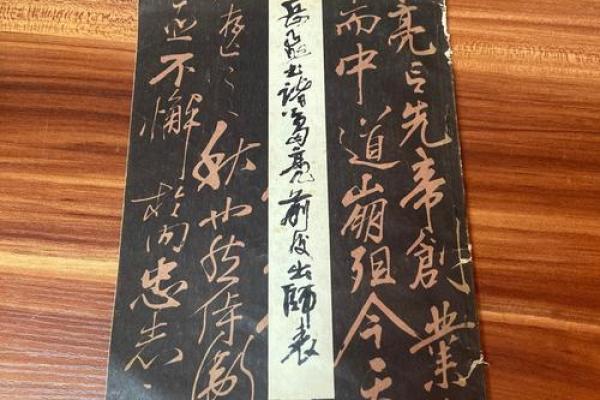 亮言先帝創業
而中道崩殂今天
岳飛书諸葛亮前後出師表
存亡之秋也然侍衛
臣不懈於内忠志